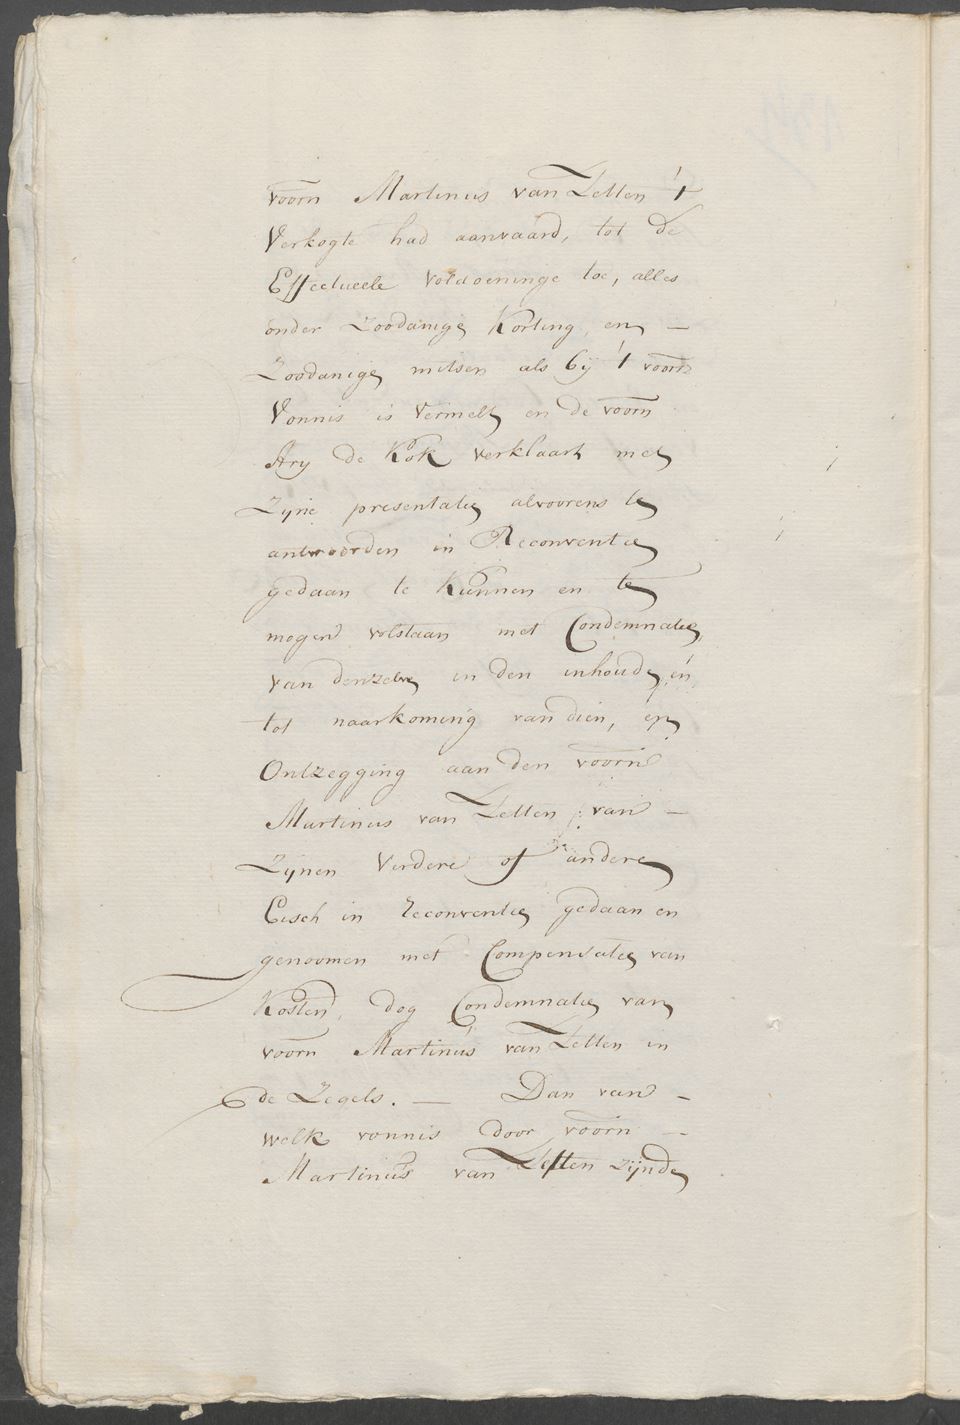 voorn Martinus van Zetten 't
Verkogte had aanvaard, tot de
Effectueele voldoeninge toe, alles
onder Zoodanige Korting, en —
Zoodanige mitsen als bij 't voorn
Vonnis is vermelt en de voorn
Ary de Kok verklaart met
Zyne presentatie alvoorens te
antwoorden in Reconventie
gedaan te Kunnen en te
mogen volstaan met Condemnatie
van denzelve in den inhoude, en
tot naarkoming van dien, en
Ontzegging aan den voorn
Martinus van Zetten, van —
Zijnen Verdere of andere
Eisch in reconventie gedaan en
genoomen met Compensatie van
Kosten, dog Condemnatie van
voorn Martinus van Zetten in
de Zegels. — Dan van —
welk vonnis door voorn —
Martinus van Zetten zijnde